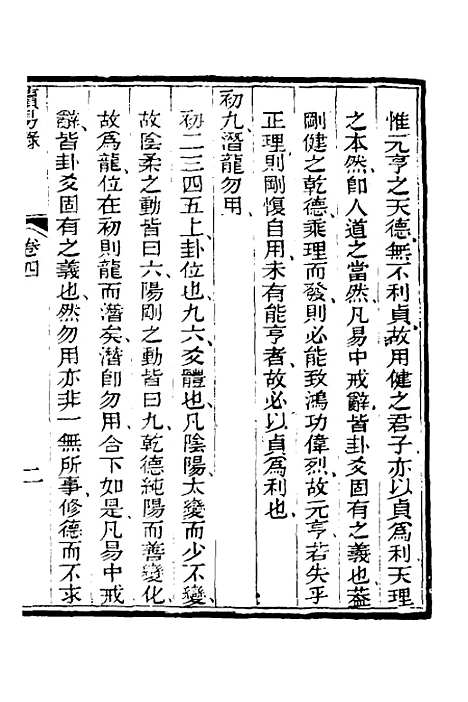 惟元亨之天德無不利貞故用健之君子亦以貞爲利天理
之本然卽人道之當然凡易中戒辭皆卦爻固有之義也葢
剛健之乾德乘理而發則必能致鴻功偉烈故元亨若失乎
正理則剛愎自用未有能亨者故必以貞爲利也
初九潛龍勿用
初二三四五上卦位也九六爻體也凡陰陽太變而少不變
故陰柔之動皆曰六陽剛之動皆曰九乾德純陽而善變化
故爲龍位在初則龍而潛矣潛卽勿用合下如是凡易中戒
辭皆卦爻固有之義也然勿用亦非一無所事修德而不求
卷四
二